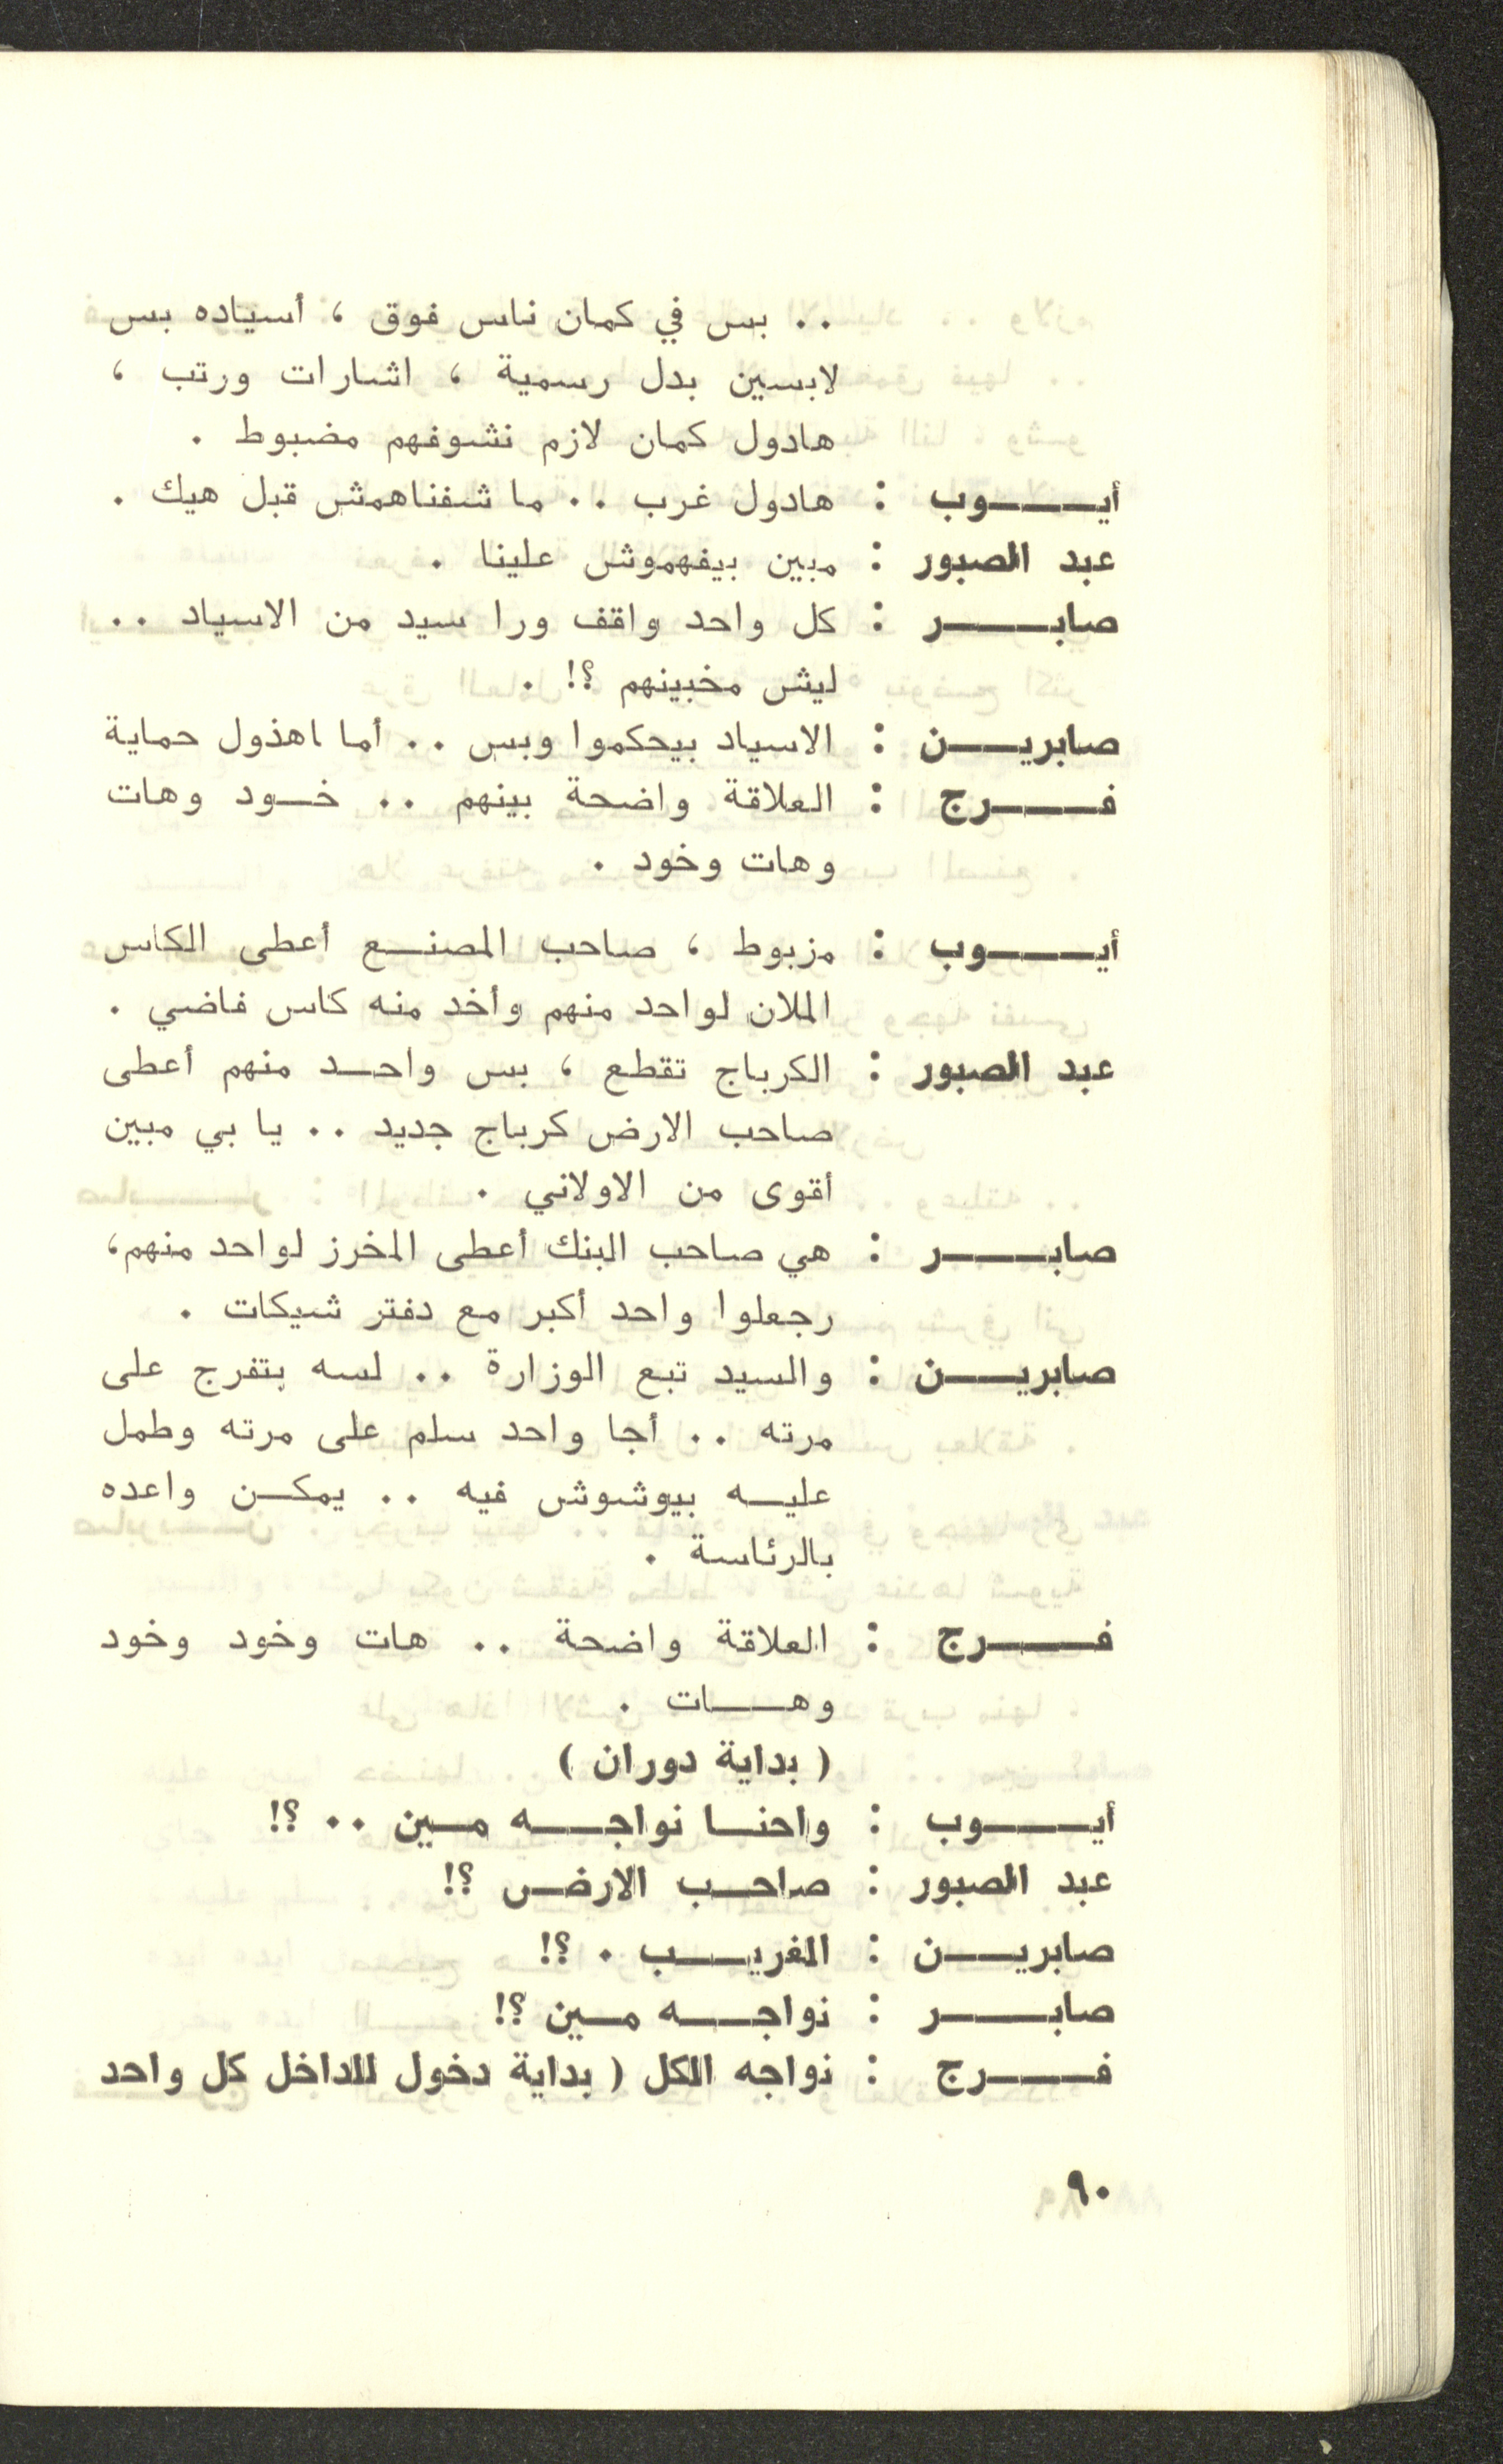 .. بس في كمان ناس فوق ، أسياده بس
لابسين بدل رسمية ، اشارات ورتب ،
هادول كمان لازم نشوفهم مضبوط .
أيوب : هادول غرب .. ما شفناهمش قبل هيك .
عبد الصبور : مبين بيفهموش علينا .
صابر : كل واحد واقف ورا سيد من الاسياد ..
ليش مخبينهم ؟! .
صابرين : الاسياد بيحكموا وبس .. أما اهذول حماية
فرج : العلاقة واضحة بينهم .. خود وهات
وهات وخود .
أيوب : مزبوط ، صاحب المصنع أعطى الكاس
الملان لواحد منهم وأخد منه كاس فاضي .
عبد الصبور : الكرباج تقطع ، بس واحد منهم أعطى
صاحب الارض كرباج جديد .. يا بي مبين
أقوى من الاولاني .
صابر : هي صاحب البنك أعطى المخرز لواحد منهم،
رجعلوا واحد أكبر مع دفتر شيكات .
صابرين : والسيد تبع الوزارة .. لسه بتفرج على
مرته .. أجا واحد سلم على مرته وطمل
عليه بيوشوش فيه .. يمكن واعده
بالرئاسة .
فرج : العلاقة واضحة .. هات وخود وخود
وهات .
( بداية دوران )
أيوب : واحنا نواجه مين .. ؟!
عبد الصبور : صاحب الارض ؟!
صابرين : الغريب . ؟!
صابر : نواجه مين ؟!
فرج : نواجه الكل ( بداية دخول للداخل كل واحد
٩٠